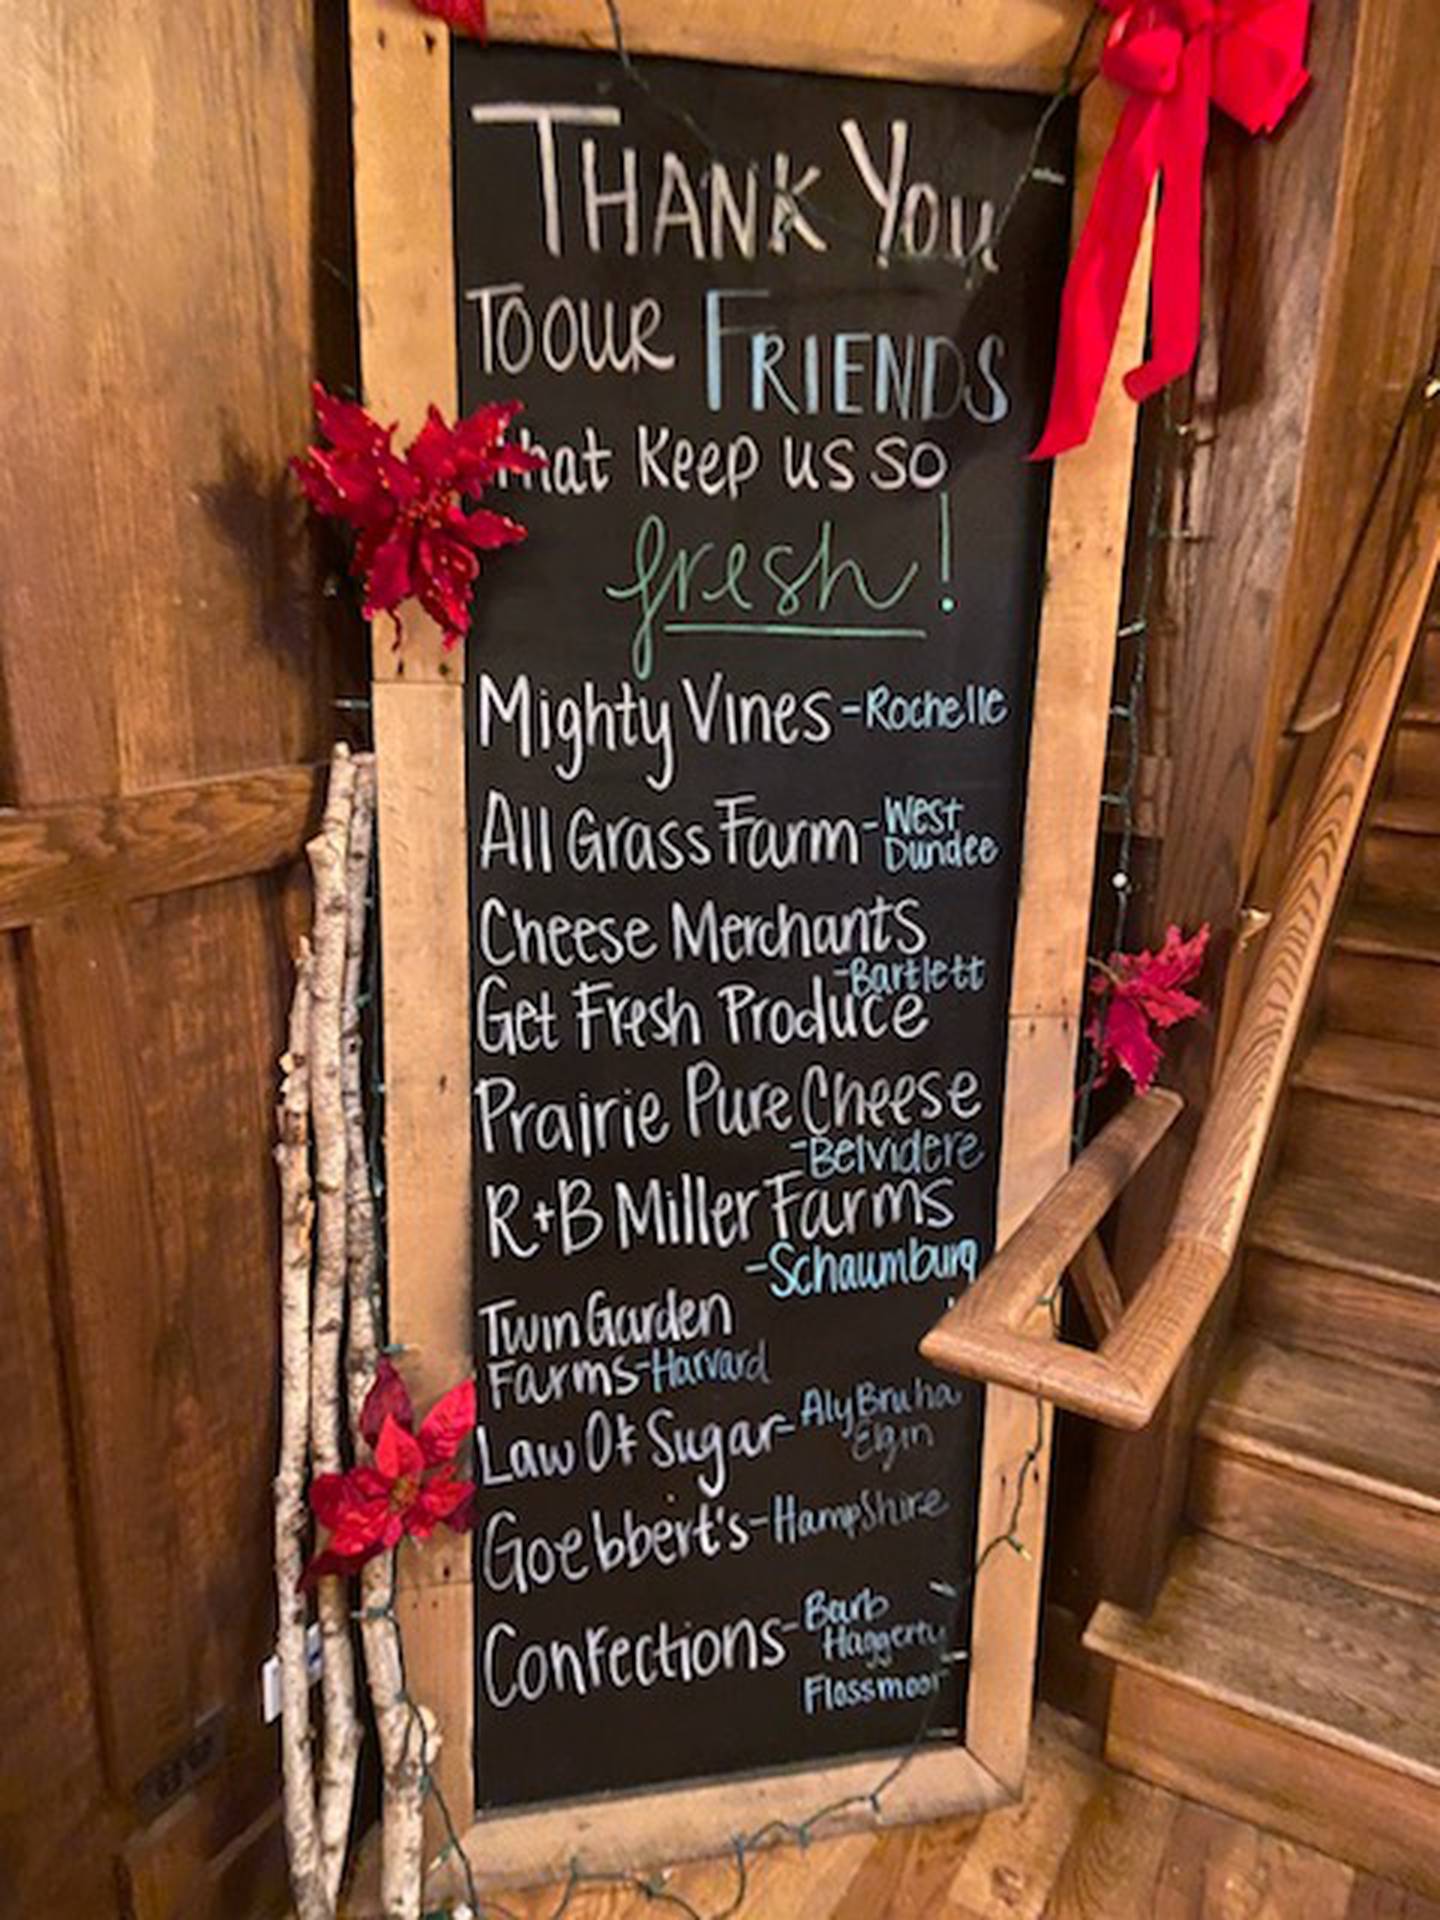 THANK YOU
TO OUR FRIENDS
that Keep us so
fresh!
Mighty Vines - Rochelle
All Grass Farm - West
Dundee
Cheese Merchants
- Bartlett
Get Fresh Produce
Prairie Pure Cheese
- Belvidere
R+B Miller Farms
- Schaumburg
Twin Garden
Farms - Harvard
Law Of Sugar - Aly Bruha
Elgin
Goebbert's - HampShire
Confections - Barb
Haggerty
Flossmoor